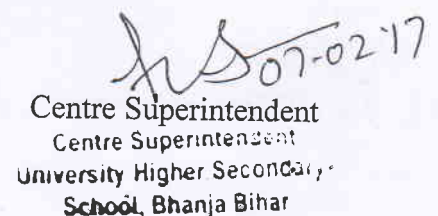 07-02-17
Centre Superintendent
Centre Superintendent
University Higher Secondary
School, Bhanja Bihar